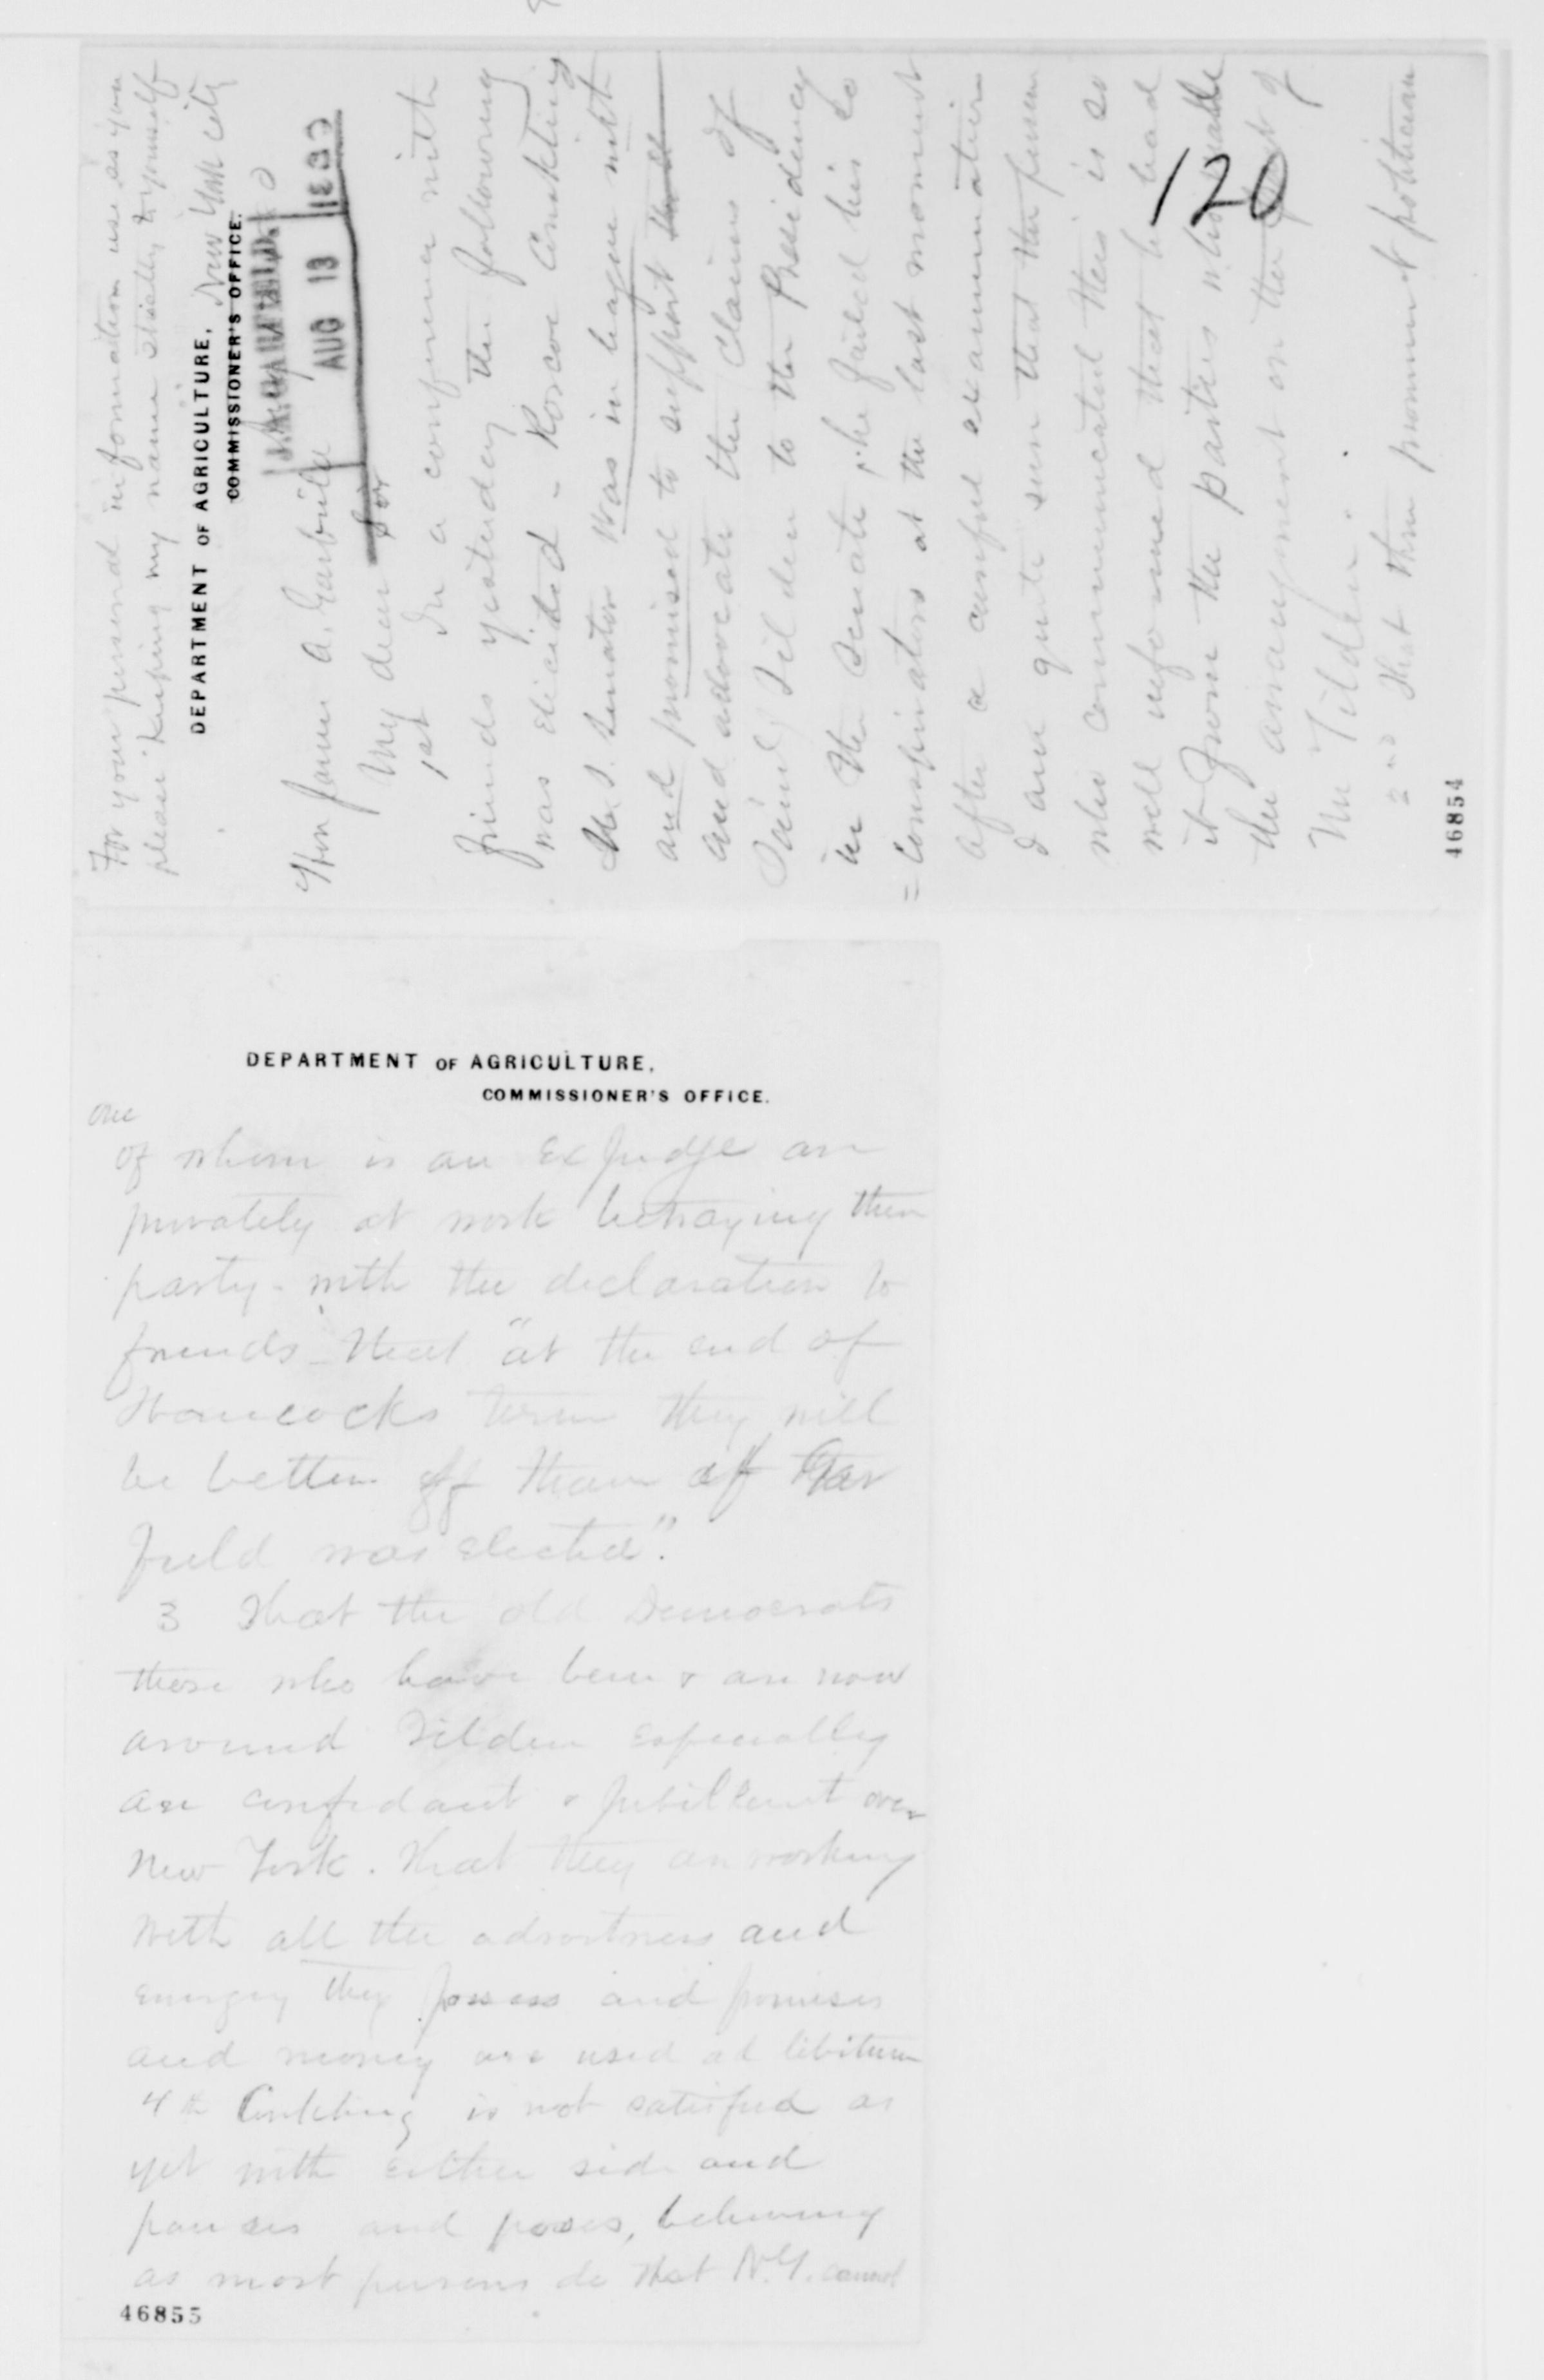 For your personal information use as you
please keeping my name strictly to yourself
DEPARTMENT OF AGRICULTURE, New York City
COMMISSIONER'S OFFICE.
AUG 13
Hon James A. Garfield
My dear Sir
1st In a conference with
friends yesterday the following
was elicited - Roscoe Conkling
U.S. Senator was in league with
and promised to support
and advocate the claims of
Saml J Tilden to the Presidency
in the Senate, he failed his co
= conspirators at the last moment
After a careful examination
I am quite sure that the person
who communicated this is so
well informed that he had
it from the parties who made
the arrangement on the part of
Mr Tilden.
2nd That three prominent politicians
120
46854
DEPARTMENT OF AGRICULTURE,
COMMISSIONER'S OFFICE.
one
of whom is an Ex Judge are
privately at work betraying their
party - with the declaration to
friends that "at the end of
Hancocks term they will
be better off than if Gar
field was elected".
3 That the old Democrats
those who have been & are now
around Tilden especially
are confidant & jubillant over
New York. That they are working
with all the adroitness and
energy they possess and promises
and money are used ad libitum
4th Conkling is not satisfied as
yet with either side and
pauses and poses, believing
as most persons do that N.Y. cannot
46855